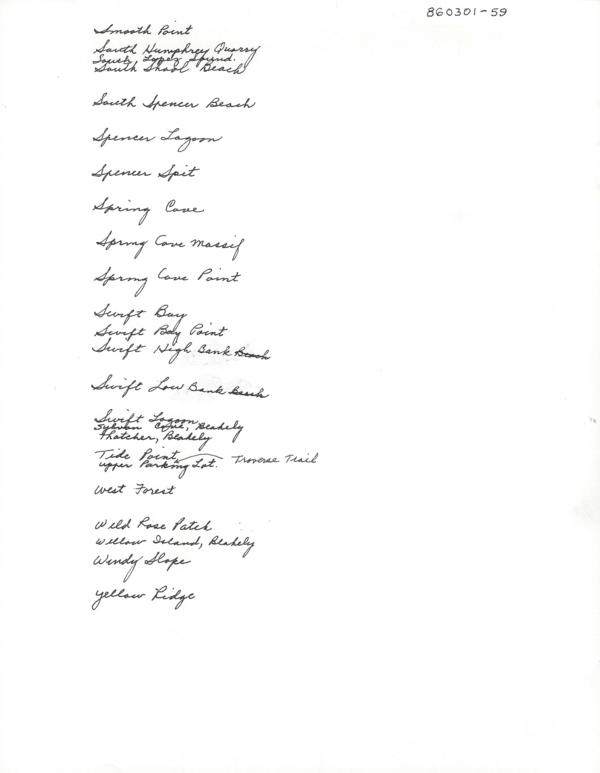 860301-59
Smooth Point
South Humphrey Quarry
South, Lopez Sound.
South Shoal Beach
South Spencer Beach
Spencer Lagoon
Spencer Spit
Spring Cove
Spring Cove Massif
Spring Cove Point
Swift Bay
Swift Bay Point
Swift High Bank Beach
Swift Low Bank Beach
Swift Lagoon
Sylvan Cove, Blakely
Thatcher, Blakely
Tide Point Traverse Trail
Upper Parking Lot.
West Forest
Wild Rose Patch
Willow Island, Blakely
Windy Slope
Yellow Ridge